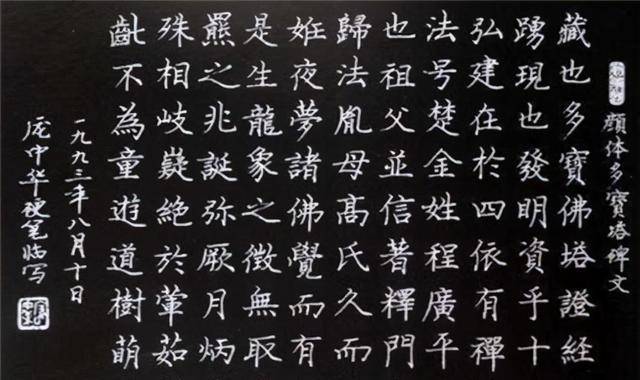 顔体多寶塔碑文
藏也多寶佛塔證經
踴現也發明資乎十
弘建在於四依有禪
法号楚金姓程廣平
也祖父並信著釋門
歸法胤母高氏久而
妊夜夢諸佛覺而有
是生龍象之徵無取
羆之兆誕弥厥月炳
殊相岐嶷絶於葷茹
齔不為童遊道樹萌
一九九三年八月十日
庞中华硬笔临写